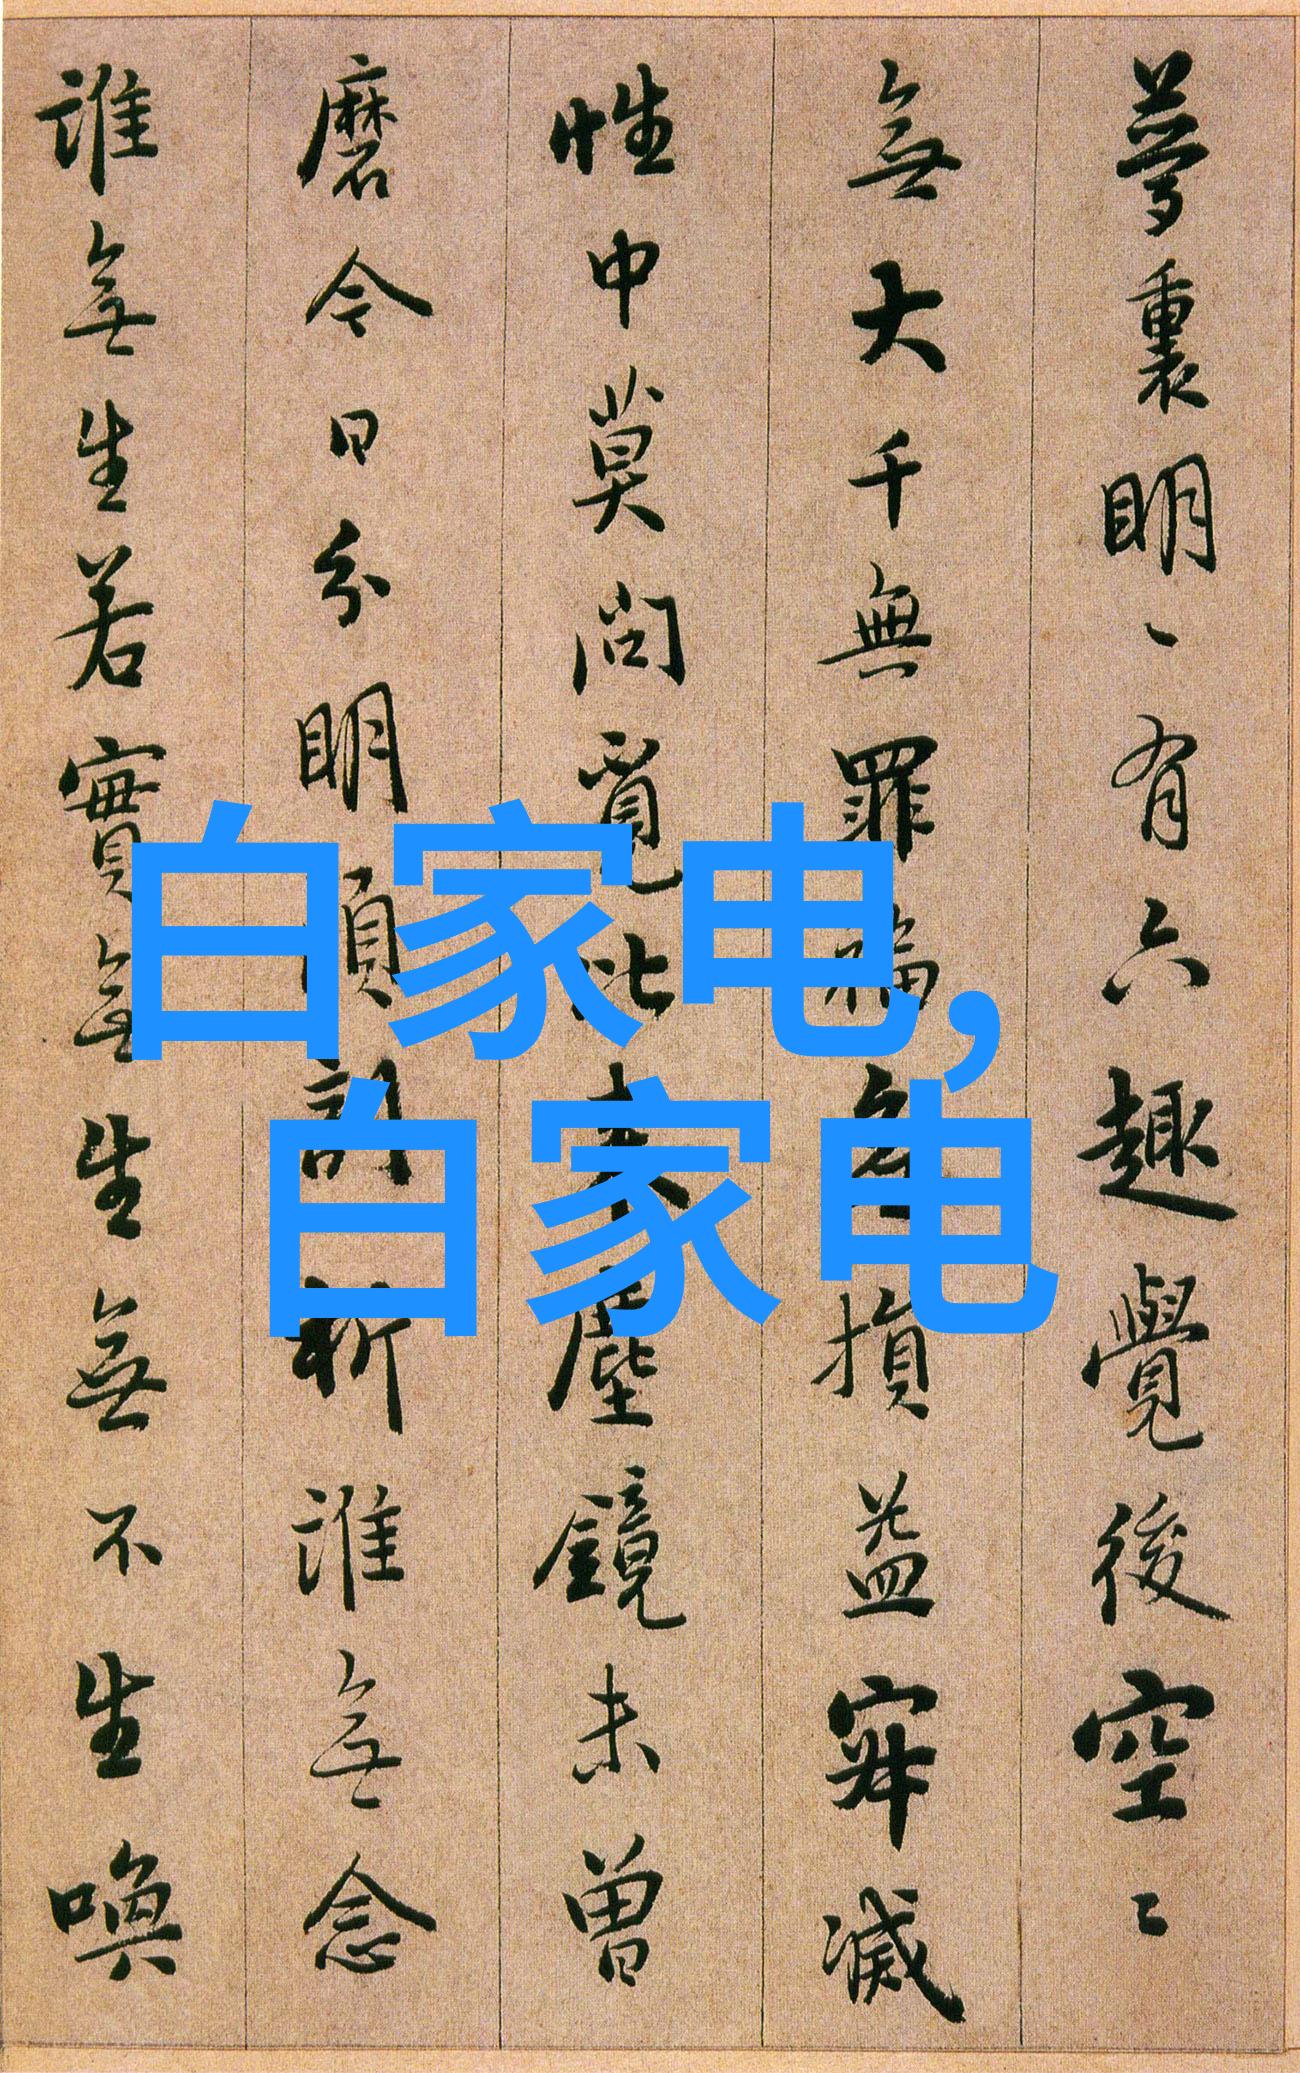 夢裏明丶有六趣覺後空〻
無大千無罪福無損益寂滅
性中莫問覓比來塵鏡未曾
磨今日分明須剖析誰無念
誰無生若實無生無不生喚
白家电,
白家电